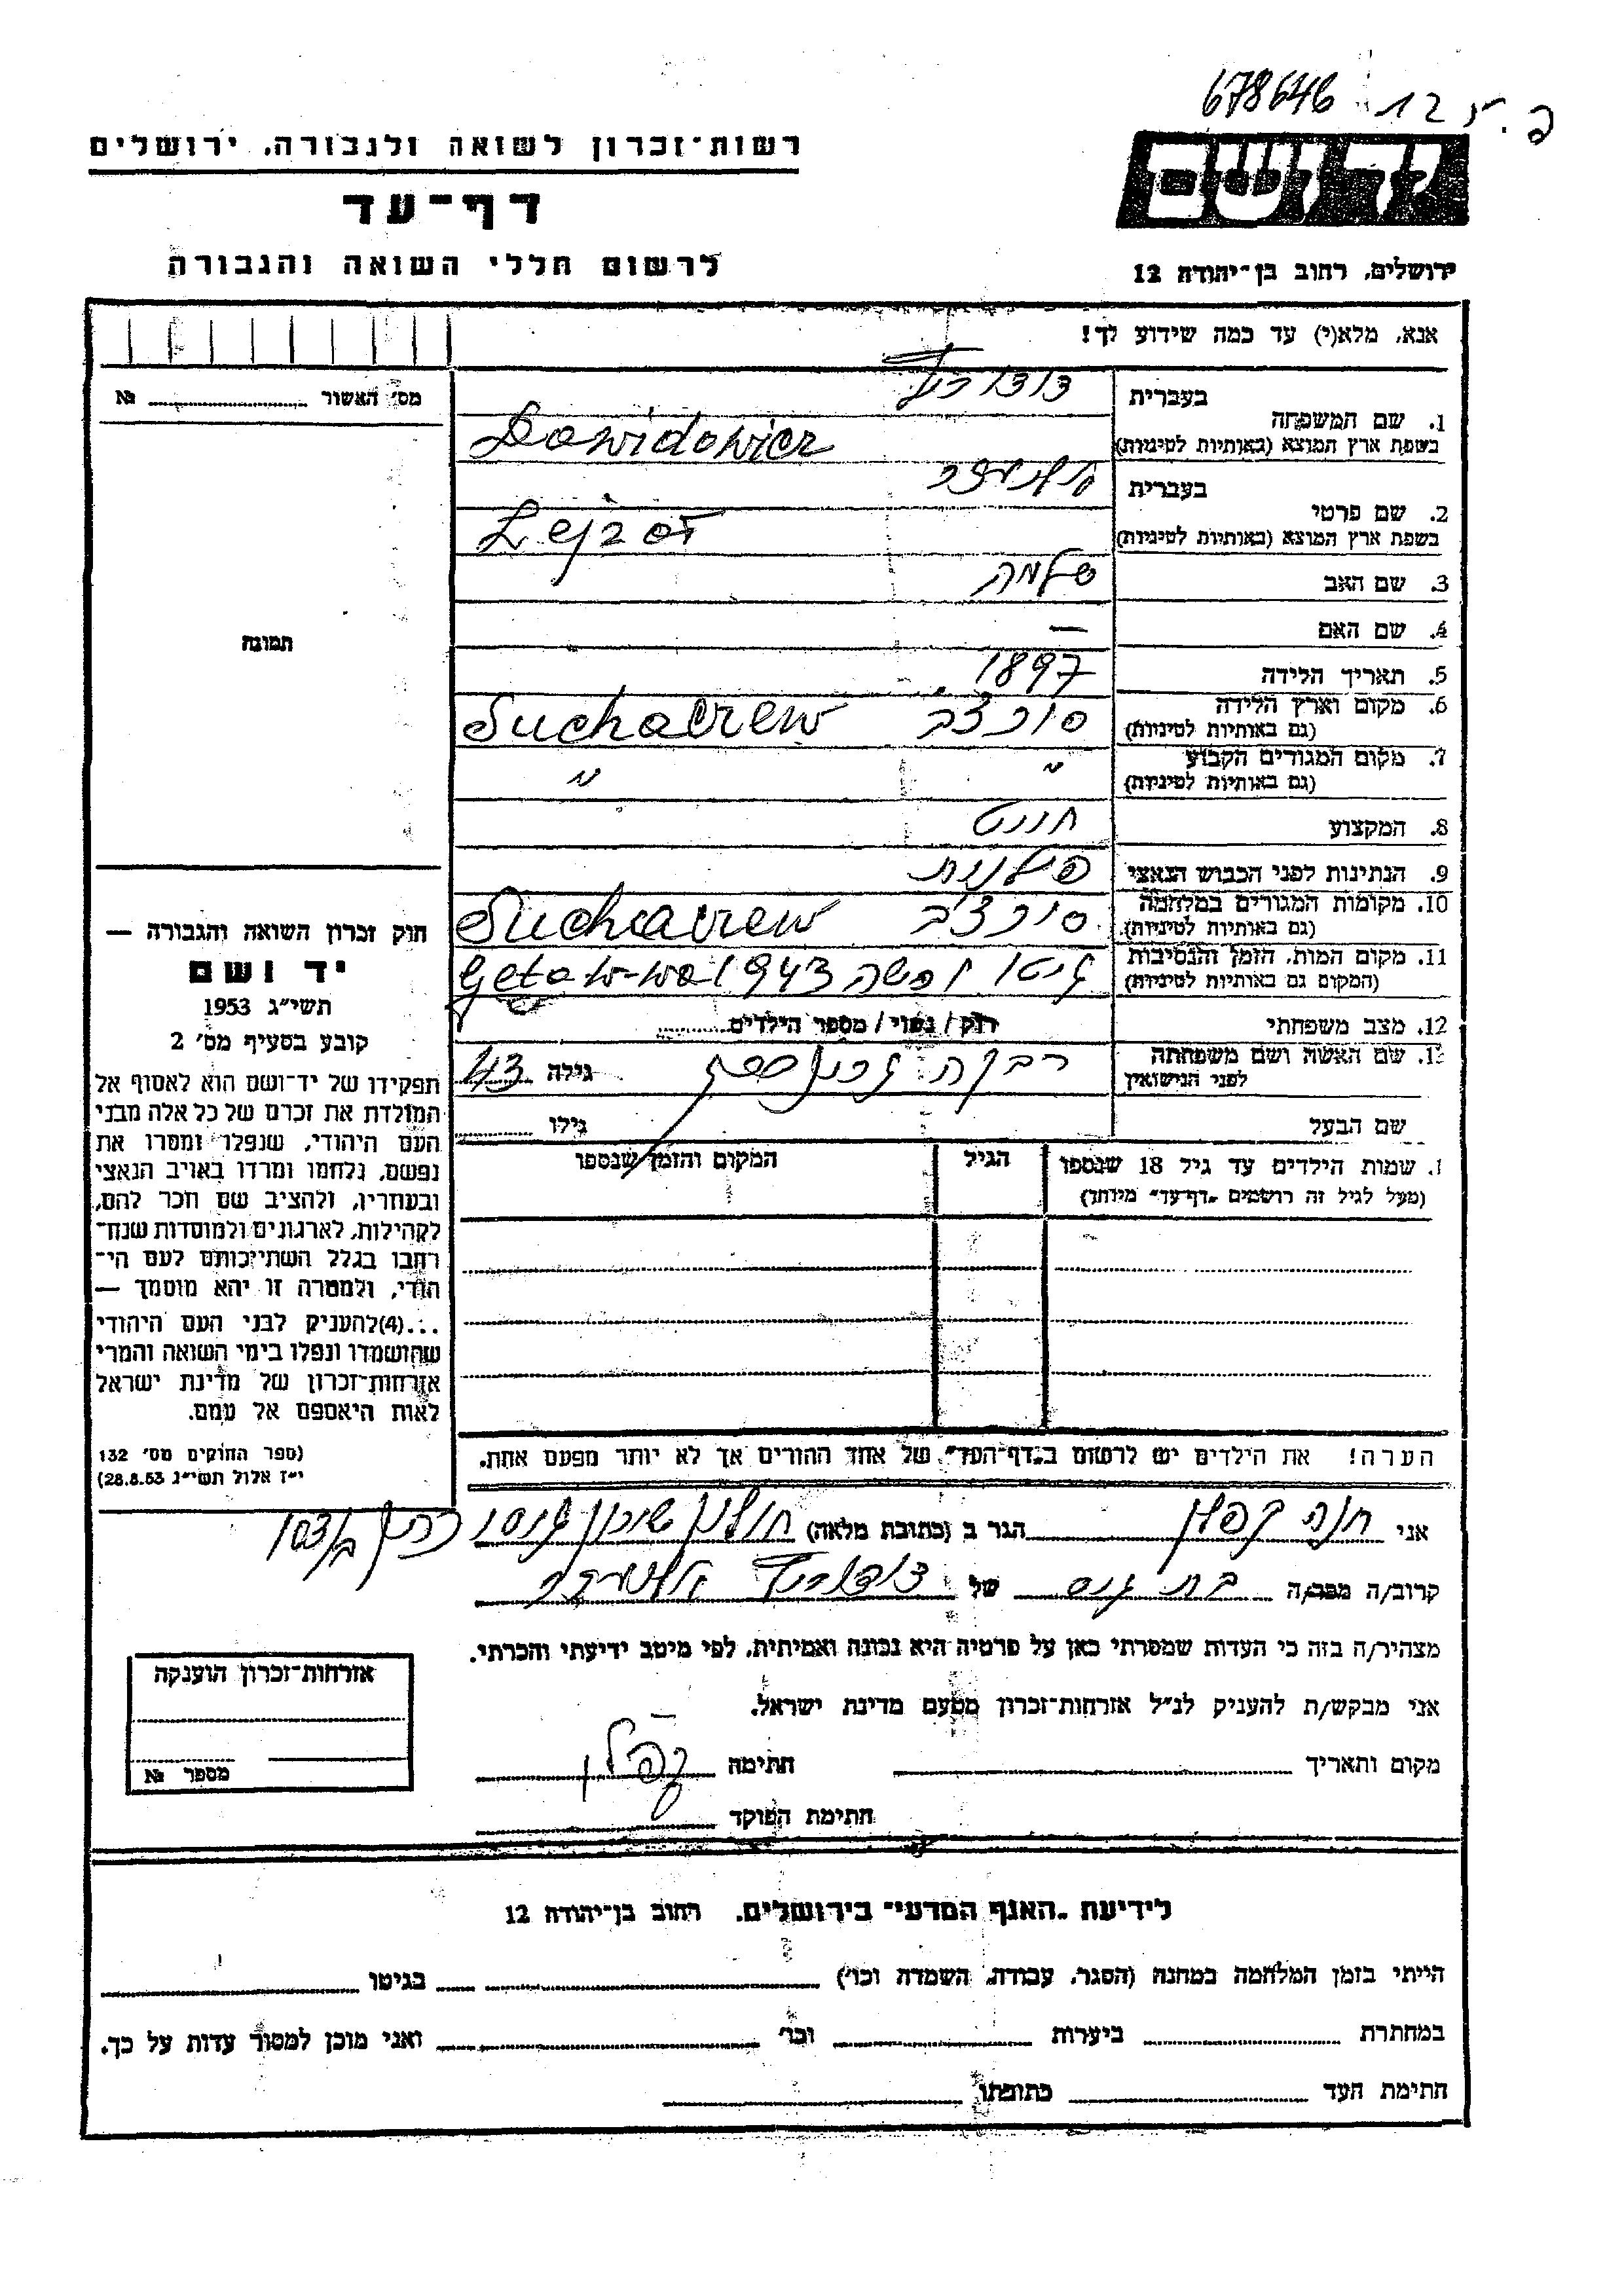 678646
רשות־זכרון לשואה ולגבורה, ירושלים
דף־עד
לרשום חללי השואה והגבורה
יד ושם
ירושלים, רחוב בן־יהודה 12
אנא, מלא(י) עד כמה שידוע לך!
מס׳ האשור № 
תמונה
חוק זכרון השואה והגבורה —
יד ושם
תשי״ג 1953
קובע בסעיף מס׳ 2
תפקידו של יד־ושם הוא לאסוף אל
המולדת את זכרם של כל אלה מבני
העם היהודי, שנפלו ומסרו את
נפשם, נלחמו ומרדו באויב הנאצי
ובעוזריו, ולהציב שם וזכר להם,
לקהילות, לארגונים ולמוסדות שנח־
רבו בגלל השתייכותם לעם הי־
הודי, ולמטרה זו יהא מוסמך —
...(4)להעניק לבני העם היהודי
שהושמדו ונפלו בימי השואה והמרי
אזרחות־זכרון של מדינת ישראל
לאות היאספם אל עמם.
(ספר החוקים מס׳ 132
י״ז אלול תשי״ג 28.8.53)
1. שם המשפחה
בעברית
בשפת ארץ המוצא (באותיות לטיניות) Dawidowicz
2. שם פרטי
בעברית
בשפת ארץ המוצא (באותיות לטיניות) Lejzor
3. שם האב שלמה
4. שם האם —
5. תאריך הלידה 1897
6. מקום וארץ הלידה
(גם באותיות לטיניות) סוכצ׳ב Suchaczew
7. מקום המגורים הקבוע
(גם באותיות לטיניות) ״ ״
8. המקצוע
9. הנתינות לפני הכבוש הנאצי פולנית
10. מקומות המגורים במלחמה
(גם באותיות לטיניות) סוכצ׳ב Suchaczew
11. מקום המות, הזמן והנסיבות
(המקום גם באותיות לטיניות) גיטו ורשה 1943 Geto W-wa
12. מצב משפחתי רוק / נשוי / מספר הילדים
13. שם האשה ושם משפחתה
לפני הנישואין רבקה גילה 43
שם הבעל גילו
שמות הילדים עד גיל 18 שנספו
(מעל לגיל זה רושמים „דף־עד״ מיוחד)
הגיל
המקום והזמן שנספו
הערה! את הילדים יש לרשום ב„דף־העד״ של אחד ההורים אך לא יותר מפעם אחת.
אני חנה קפלן הגר ב (כתובת מלאה) חולון שיכון
קרוב/ה מכר/ה בת גיס של דודוביץ
מצהיר/ה בזה כי העדות שמסרתי כאן על פרטיה היא נכונה ואמיתית, לפי מיטב ידיעתי והכרתי.
אני מבקש/ת להעניק לנ״ל אזרחות־זכרון מטעם מדינת ישראל.
מקום ותאריך חתימה קפלן
חתימת הפוקד
אזרחות־זכרון הוענקה
מספר №
לידיעת „האגף המדעי״ בירושלים, רחוב בן־יהודה 12
הייתי בזמן המלחמה במחנה (הסגר, עבודה, השמדה וכו׳) בגיטו
במחתרת ביערות וכו׳ ואני מוכן למסור עדות על כך.
חתימת העד כתובתו